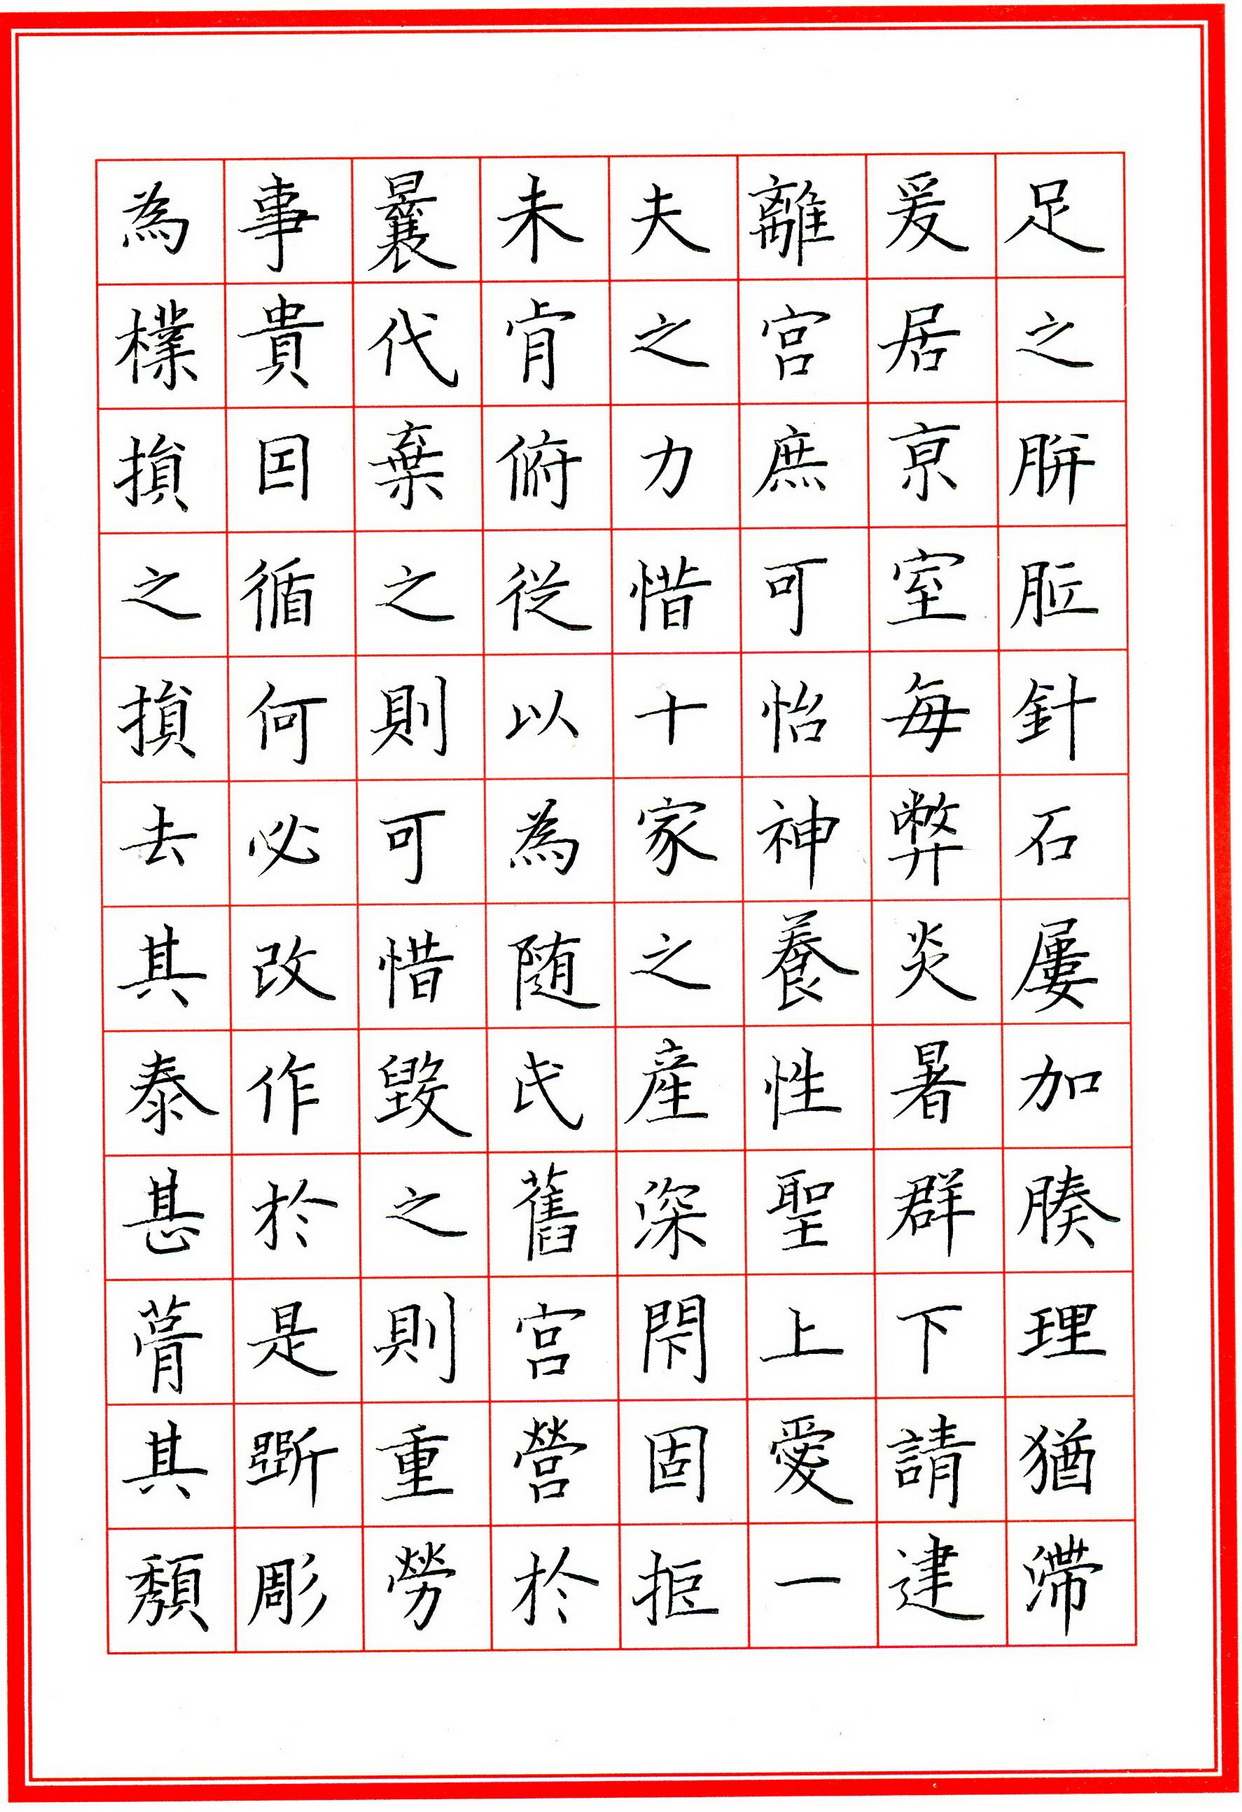 足之胼胝針石屢加腠理猶滯
爰居亰室每弊炎暑群下請建
離宮庶可怡神養性聖上愛一
夫之力惜十家之産深閇固拒
未肯俯從以為随氏舊宮營於
曩代棄之則可惜毀之則重勞
事貴囙循何必改作於是斲彫
為樸損之損去其泰甚葺其頹